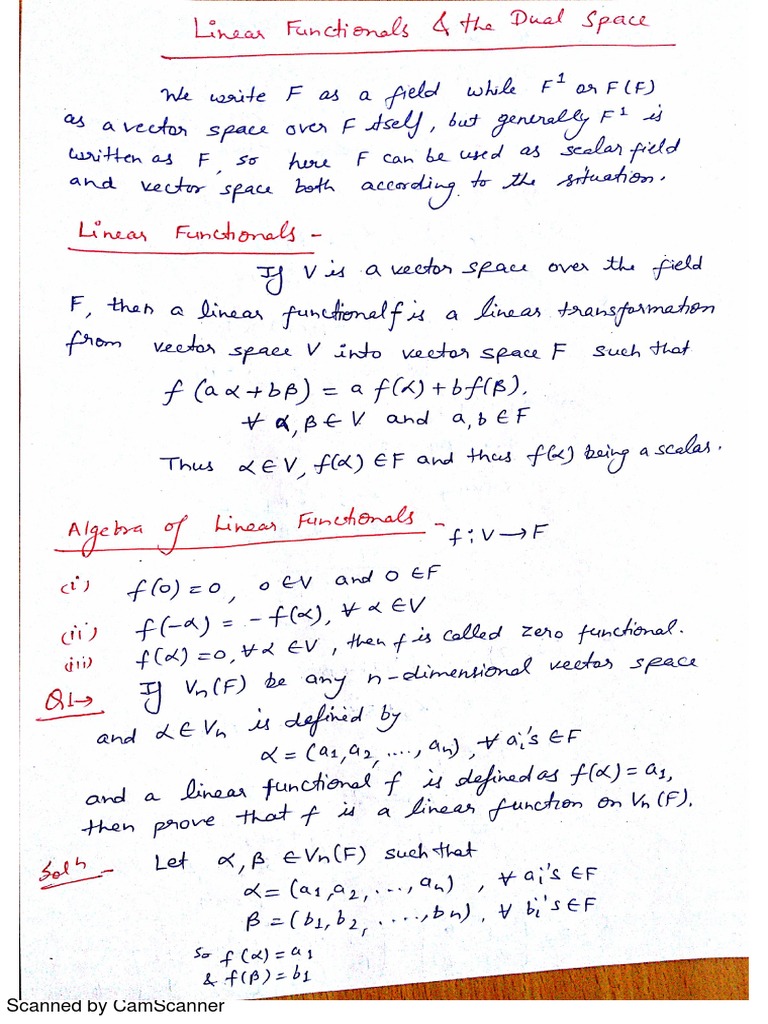 Linear Functionals & the Dual Space
We write F as a field while F¹ or F(F)
as a vector space over F itself, but generally F¹ is
written as F, so here F can be used as scalar field
and vector space both according to the situation.
Linear Functionals -
If V is a vector space over the field
F, then a linear functional f is a linear transformation
from vector space V into vector space F such that
f (aα+bβ) = a f(α) + b f(β).
∀ α, β ∈ V and a, b ∈ F
Thus α ∈ V, f(α) ∈ F and thus f(α) being a scalar.
Algebra of Linear Functionals - f : V → F
(i) f(0) = 0, 0 ∈ V and 0 ∈ F
(ii) f(-α) = - f(α), ∀ α ∈ V
(iii) f(α) = 0, ∀ α ∈ V, then f is called zero functional.
Q1→ If Vn(F) be any n-dimensional vector space
and α ∈ Vn is defined by
α = (a1, a2, ...., an), ∀ ai's ∈ F
and a linear functional f is defined as f(α) = a1,
then prove that f is a linear function on Vn(F).
Solⁿ - Let α, β ∈ Vn(F) such that
α = (a1, a2, ..., an), ∀ ai's ∈ F
β = (b1, b2, ...., bn), ∀ bi's ∈ F
so f(α) = a1
& f(β) = b1
Scanned by CamScanner